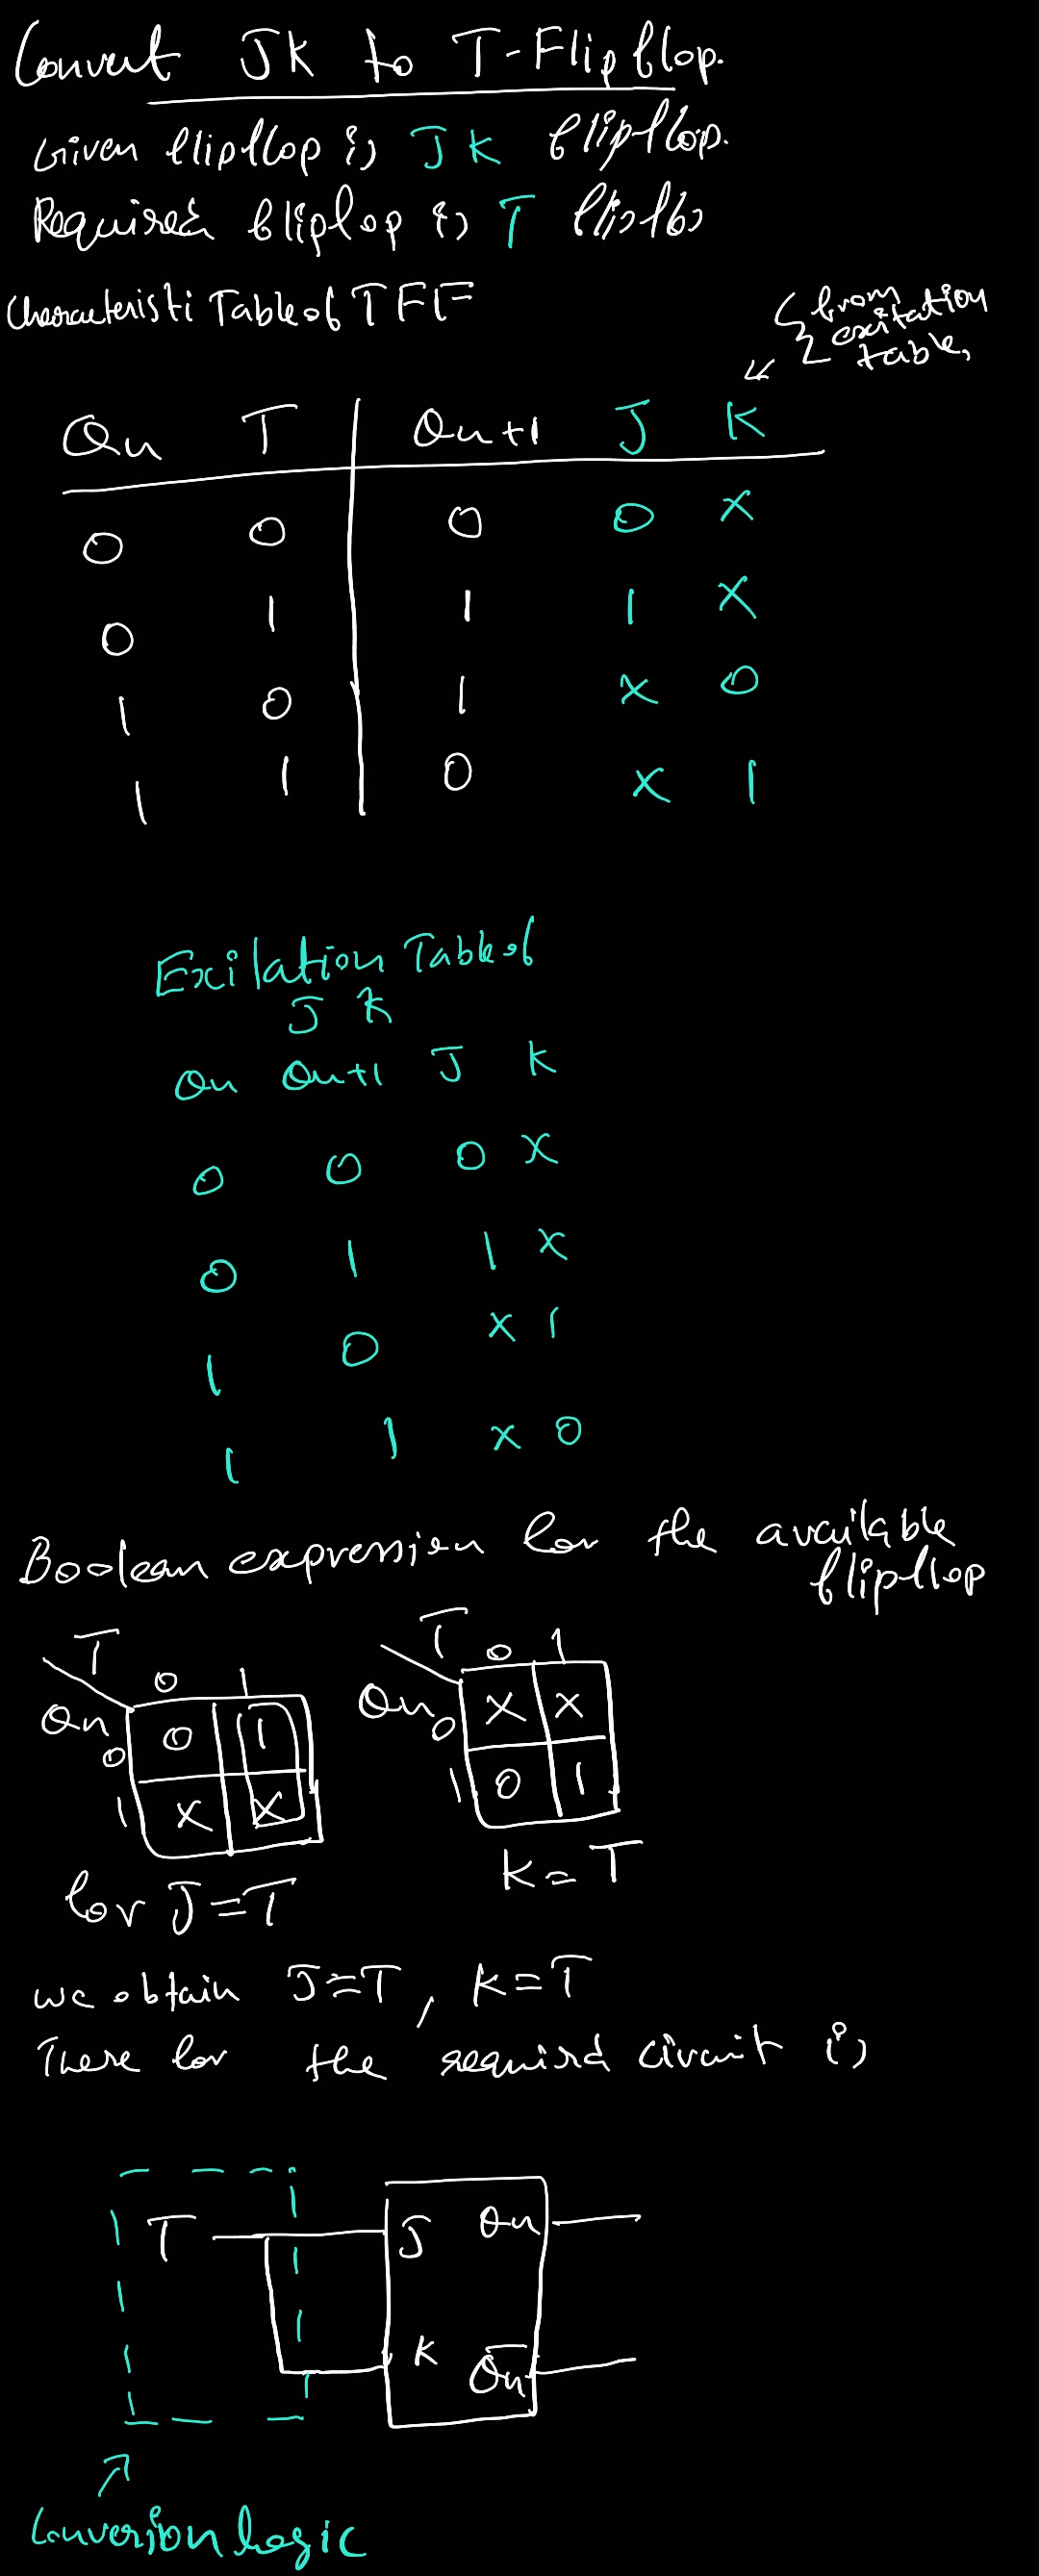 Convert JK to T-Flipflop.
Given flipflop is JK flipflop.
Required fliplop is T
Characteristi Table of TFF
from
excitation
table,
Qn T Qn+1 J K
0 0 0 0 x
0 1 1 1 x
1 0 1 x 0
1 1 0 x 1
Exilation Table of
J K
Qn Qn+1 J K
0 0 0 x
0 1 1 x
1 0 x 1
1 1 x 0
Boolean expression for the available
flipflop
T 0 1
Qn
0 0 1
1 x x
for J=T
T 0 1
Qn
0 x x
1 0 1
K=T
we obtain J=T, K=T
There for the requird circuit is
T J Qn
K Q̅n
Conversion logic